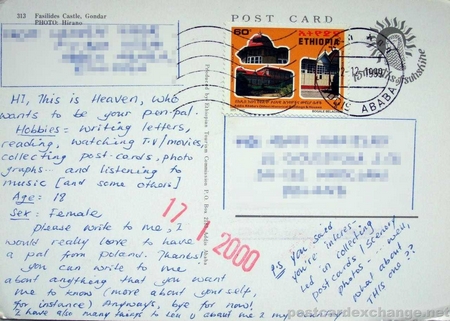 313 Fasilides Castle, Gondar
PHOTO: Hirano
POST CARD
60
ETHIOPIA
1999
ADDIS ABABA
Hi, This is Heaven, who
wants to be your pen-pal.
Hobbies: writing letters,
reading, watching T.V/movies,
collecting post-cards, photo
graphs... and listening to
music [and some others]
Age: 18
Sex: Female
please write to me, I
would really love to have
a pal from poland. Thanks!
you can write to me
about anything that you want
me to know (more about yourself,
for instance) Anyways, bye for now!
I have also many things to tell u about me & my
Produced by Ethiopian Tourism Commission P.O. Box Addis Ababa
17 1 2000
PS You said
you're interes-
ted in collecting
postcards, scenery
photos... well,
what about
This one??
postcardexchange.net